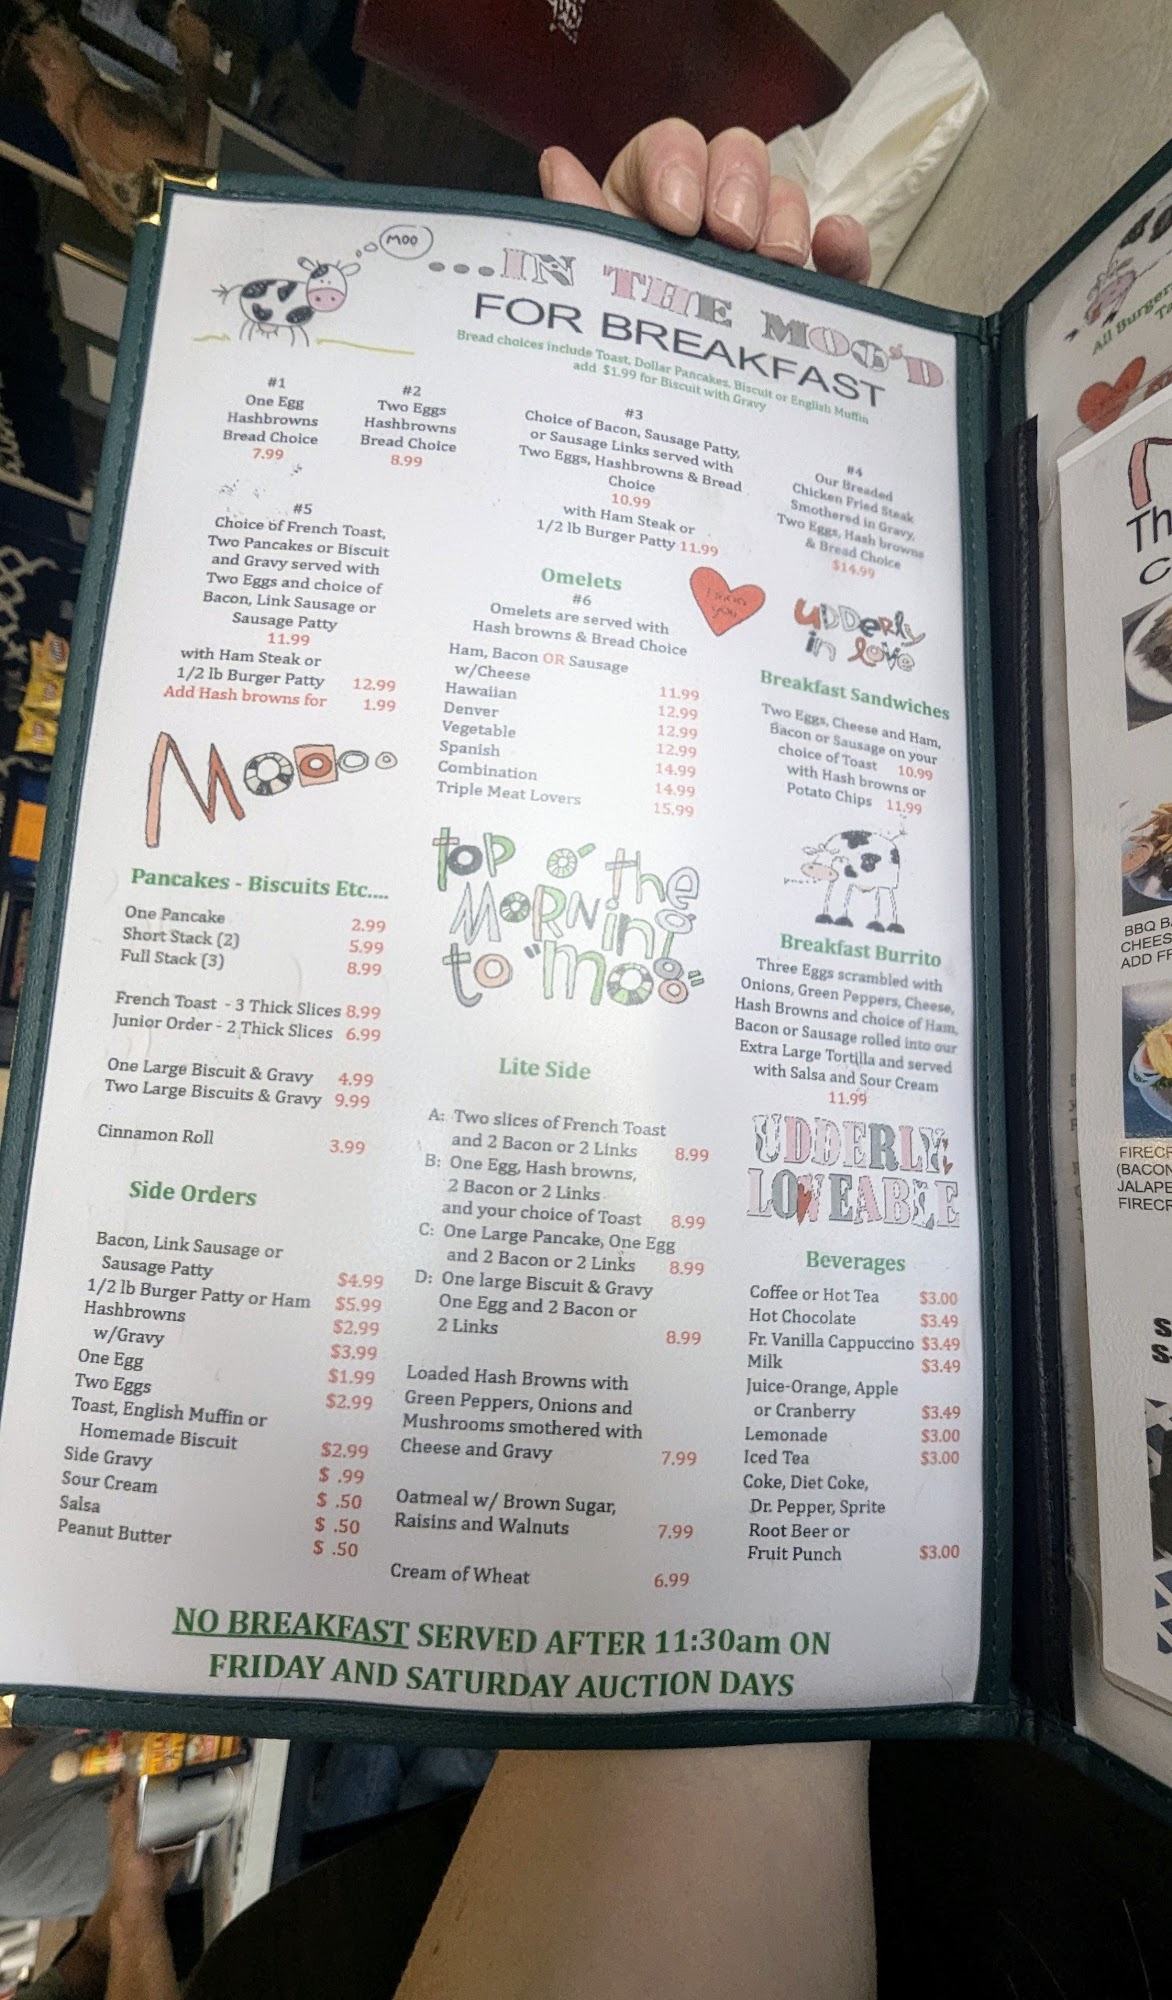 MOO
...IN THE MOO'D
FOR BREAKFAST
Bread choices include Toast, Dollar Pancakes, Biscuit or English Muffin
add $1.99 for Biscuit with Gravy
#1
One Egg
Hashbrowns
Bread Choice
7.99
#2
Two Eggs
Hashbrowns
Bread Choice
8.99
#3
Choice of Bacon, Sausage Patty,
or Sausage Links served with
Two Eggs, Hashbrowns & Bread
Choice
10.99
with Ham Steak or
1/2 lb Burger Patty 11.99
#4
Our Breaded
Chicken Fried Steak
Smothered in Gravy,
Two Eggs, Hash browns
& Bread Choice
$14.99
#5
Choice of French Toast,
Two Pancakes or Biscuit
and Gravy served with
Two Eggs and choice of
Bacon, Link Sausage or
Sausage Patty
11.99
with Ham Steak or
1/2 lb Burger Patty 12.99
Add Hash browns for 1.99
Mooooo
Omelets
#6
Omelets are served with
Hash browns & Bread Choice
Ham, Bacon OR Sausage
w/Cheese 11.99
Hawaiian 12.99
Denver 12.99
Vegetable 12.99
Spanish 14.99
Combination 14.99
Triple Meat Lovers 15.99
I moo
you
UDDerly
in love
Breakfast Sandwiches
Two Eggs, Cheese and Ham,
Bacon or Sausage on your
choice of Toast 10.99
with Hash browns or
Potato Chips 11.99
top o' the
MORNing
to "moo"
Pancakes - Biscuits Etc....
One Pancake 2.99
Short Stack (2) 5.99
Full Stack (3) 8.99
French Toast - 3 Thick Slices 8.99
Junior Order - 2 Thick Slices 6.99
One Large Biscuit & Gravy 4.99
Two Large Biscuits & Gravy 9.99
Cinnamon Roll 3.99
Side Orders
Bacon, Link Sausage or
Sausage Patty $4.99
1/2 lb Burger Patty or Ham $5.99
Hashbrowns $2.99
w/Gravy $3.99
One Egg $1.99
Two Eggs $2.99
Toast, English Muffin or
Homemade Biscuit $2.99
Side Gravy $ .99
Sour Cream $ .50
Salsa $ .50
Peanut Butter $ .50
Lite Side
A: Two slices of French Toast
and 2 Bacon or 2 Links 8.99
B: One Egg, Hash browns,
2 Bacon or 2 Links
and your choice of Toast 8.99
C: One Large Pancake, One Egg
and 2 Bacon or 2 Links 8.99
D: One large Biscuit & Gravy
One Egg and 2 Bacon or
2 Links 8.99
Loaded Hash Browns with
Green Peppers, Onions and
Mushrooms smothered with
Cheese and Gravy 7.99
Oatmeal w/ Brown Sugar,
Raisins and Walnuts 7.99
Cream of Wheat 6.99
Breakfast Burrito
Three Eggs scrambled with
Onions, Green Peppers, Cheese,
Hash Browns and choice of Ham,
Bacon or Sausage rolled into our
Extra Large Tortilla and served
with Salsa and Sour Cream
11.99
UDDERLY
LOVEABLE
Beverages
Coffee or Hot Tea $3.00
Hot Chocolate $3.49
Fr. Vanilla Cappuccino $3.49
Milk $3.49
Juice-Orange, Apple
or Cranberry $3.49
Lemonade $3.00
Iced Tea $3.00
Coke, Diet Coke,
Dr. Pepper, Sprite
Root Beer or
Fruit Punch $3.00
NO BREAKFAST SERVED AFTER 11:30am ON
FRIDAY AND SATURDAY AUCTION DAYS
All Burger
Th
C
BBQ B
CHEES
ADD FR
FIRECR
(BACON
JALAPE
FIRECR